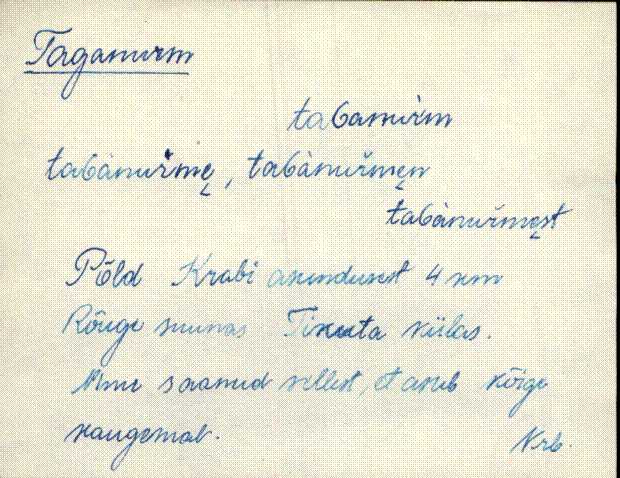 Taganurm
tabanùrm
tabànuřmę, tabànuřmęn
tabànuřmęst
Põld Krabi asundusest 4 km
Rõuge suunas Tikuta külas.
Nime saanud sellest, et asub kõige
kaugemal. Krb.